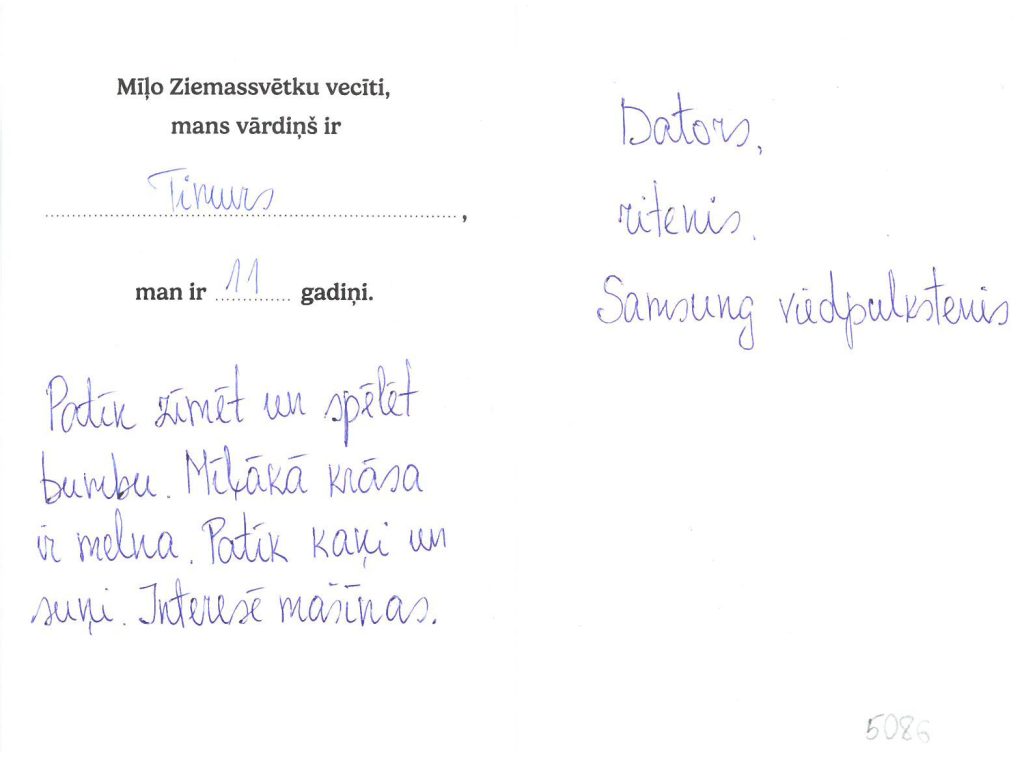 Mīļo Ziemassvētku vecīti,
mans vārdiņš ir
Timurs,
man ir 11 gadiņi.
Patīk zīmēt un spēlēt
bumbu. Mīļākā krāsa
ir melna. Patīk kaķi un
suņi. Interesē mašīnas.
Dators,
ritenis.
Samsung viedpulkstenis
5086